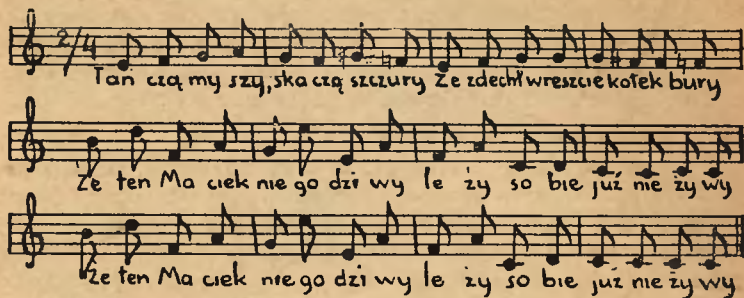 2/4
Tań czą my szy, ska czą szczury Że zdechł wreszcie kotek bury
Że ten Ma ciek nie go dzi wy le ży so bie już nie ży wy
Że ten Ma ciek nie go dzi wy le ży so bie już nie ży wy